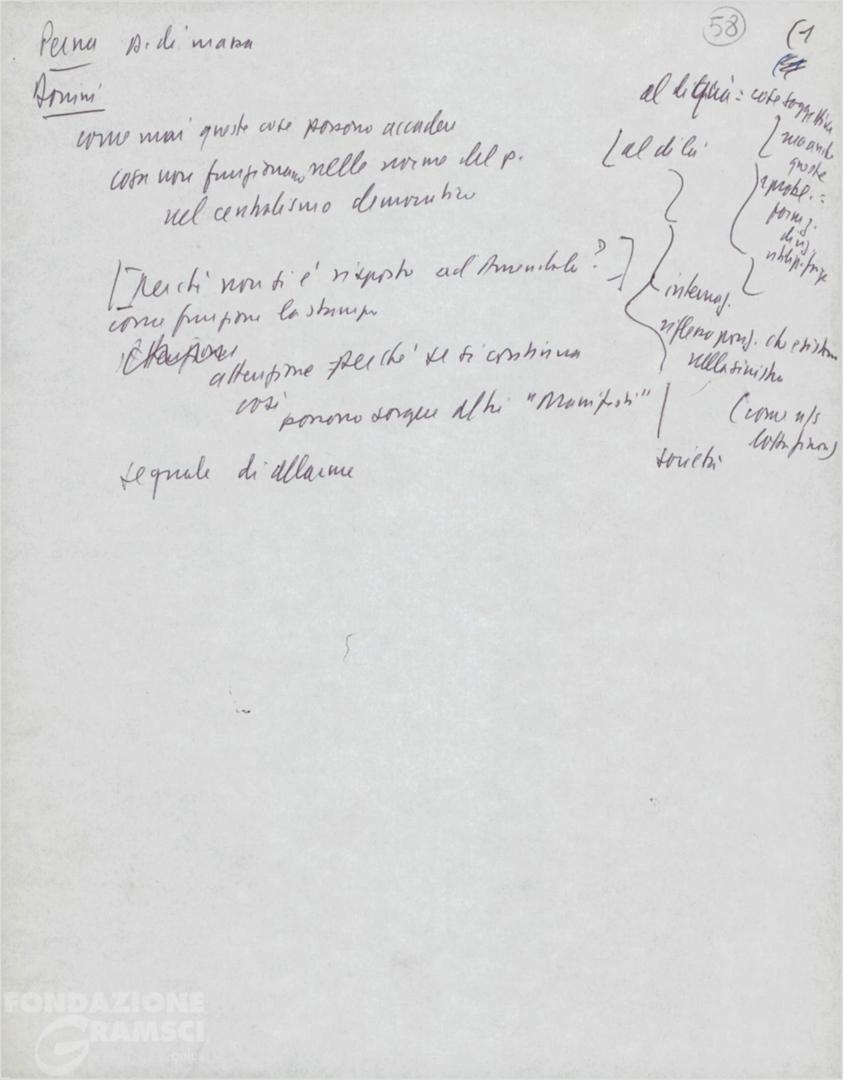 58
(1
Perna p. di massa
Donini
come mai queste cose possono accadere
cosa non funzionano nelle norme del p.
nel centralismo democratico
[Perché non si è risposto ad Amendola?]
come funziona la stampa
attenzione perché se si continua
così
possono sorgere altri "Manifesti"
segnale di allarme
al di quà = cose soggettive
[al di là
ma anche
queste
probl. =
formaz.
internaz.
riflesso posiz. che esistono
nella sinistra
(come
società
FONDAZIONE
GRAMSCI